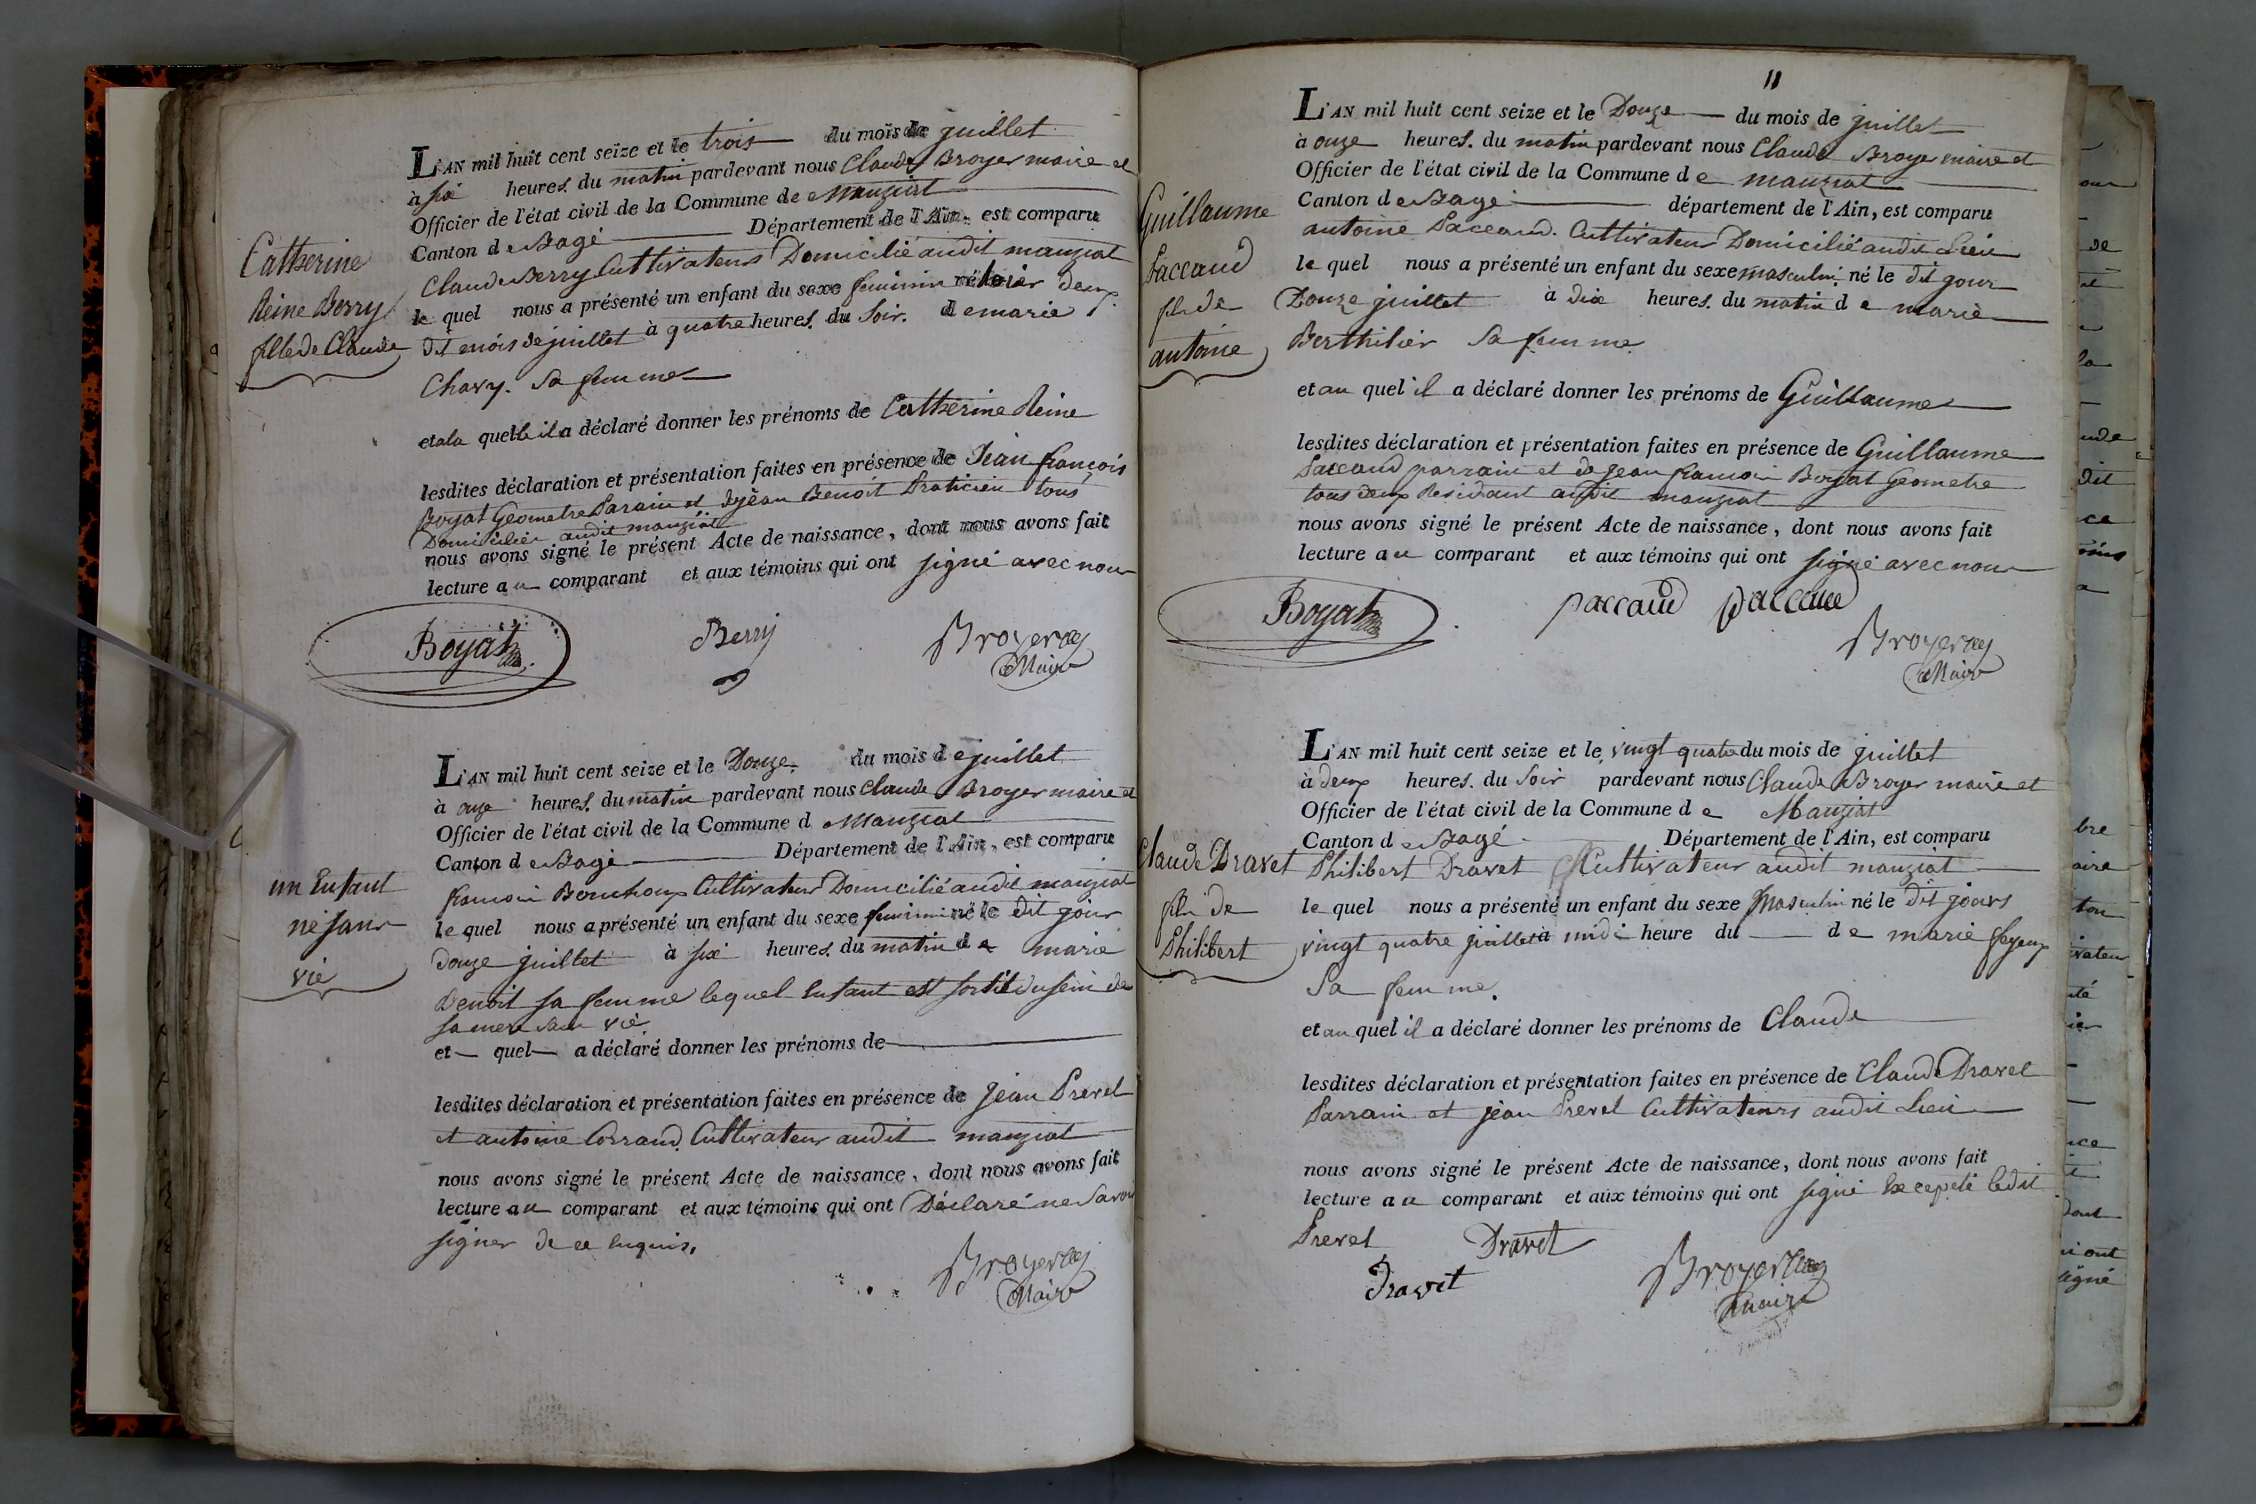 Catherine
Reine Berry
fille de Claude
L'AN mil huit cent seize et le trois du mois de juillet
à six heures du matin pardevant nous Claude Broyer maire et
Officier de l'état civil de la Commune de Manziat
Canton de Bagé Département de l'Ain, est comparu
Claude Berry Cultivateur Domicilié audit manziat
le quel nous a présenté un enfant du sexe feminin né hier deux
dit mois de juillet à quatre heures du Soir. de marie
Chavy. Sa femme
et a la quelle il a déclaré donner les prénoms de Catherine Reine
lesdites déclaration et présentation faites en présence de Jean françois
Boyat Geometre Parain et de jean Benoit Praticien tous
Domicilier audit manziat
nous avons signé le présent Acte de naissance, dont nous avons fait
lecture au comparant et aux témoins qui ont signé avec nous
Boyat Berry Broyer
Maire
un Enfant
né sans
vie
L'AN mil huit cent seize et le Douze du mois de juillet
à onze heures du matin pardevant nous Claude Broyer maire et
Officier de l'état civil de la Commune d Manziat
Canton de Bagé Département de l'Ain, est comparu
francoi Cultivateur Domicilié audit manziat
le quel nous a présenté un enfant du sexe feminin né le dit jour
douze juillet à six heures du matin de marie
Benoit sa femme lequel Enfant est sortit du sein de
sa mere sans vie
et quel a déclaré donner les prénoms de
lesdites déclaration et présentation faites en présence de jean Prevel
et antoine Corrand Cultivateur audit manziat
nous avons signé le présent Acte de naissance, dont nous avons fait
lecture au comparant et aux témoins qui ont Déclaré ne Savoir
signer de ce Enquis.
Broyer
Maire
11
Guillaume
Paccaud
fils de
antoine
L'AN mil huit cent seize et le Douze du mois de juillet
à onze heures du matin pardevant nous Claude Broyer maire et
Officier de l'état civil de la Commune de manziat
Canton de Bagé département de l'Ain, est comparu
antoine Paccaud. Cultivateur Domicilié audit Lieu
le quel nous a présenté un enfant du sexe masculin né le dit jour
Douze juillet à dix heures du matin de marie
Berthilier Sa femme
et au quel il a déclaré donner les prénoms de Guillaume
lesdites déclaration et présentation faites en présence de Guillaume
Paccaud parrain et de Jean francoi Boyat Geometre
tous deux Residant audit manziat
nous avons signé le présent Acte de naissance, dont nous avons fait
lecture au comparant et aux témoins qui ont signé avec nous
Boyat paccaud paccaud
Broyer
Maire
Claude Dravet
fils de
Philibert
L'AN mil huit cent seize et le vingt quatre du mois de juillet
à deux heures du Soir pardevant nous Claude Broyer maire et
Officier de l'état civil de la Commune de Manziat
Canton de Bagé Département de l'Ain, est comparu
Philibert Dravet Cultivateur audit manziat
le quel nous a présenté un enfant du sexe Masculin né le dit jours
vingt quatre juillet à midi heure du de marie feyeux
Sa femme.
et au quel il a déclaré donner les prénoms de Claude
lesdites déclaration et présentation faites en présence de Claude Dravet
Parrain et jean Prevel Cultivateurs audit Lieu
nous avons signé le présent Acte de naissance, dont nous avons fait
lecture au comparant et aux témoins qui ont signé Excepté ledit
Prevel Dravet
Dravet Broyer
maire